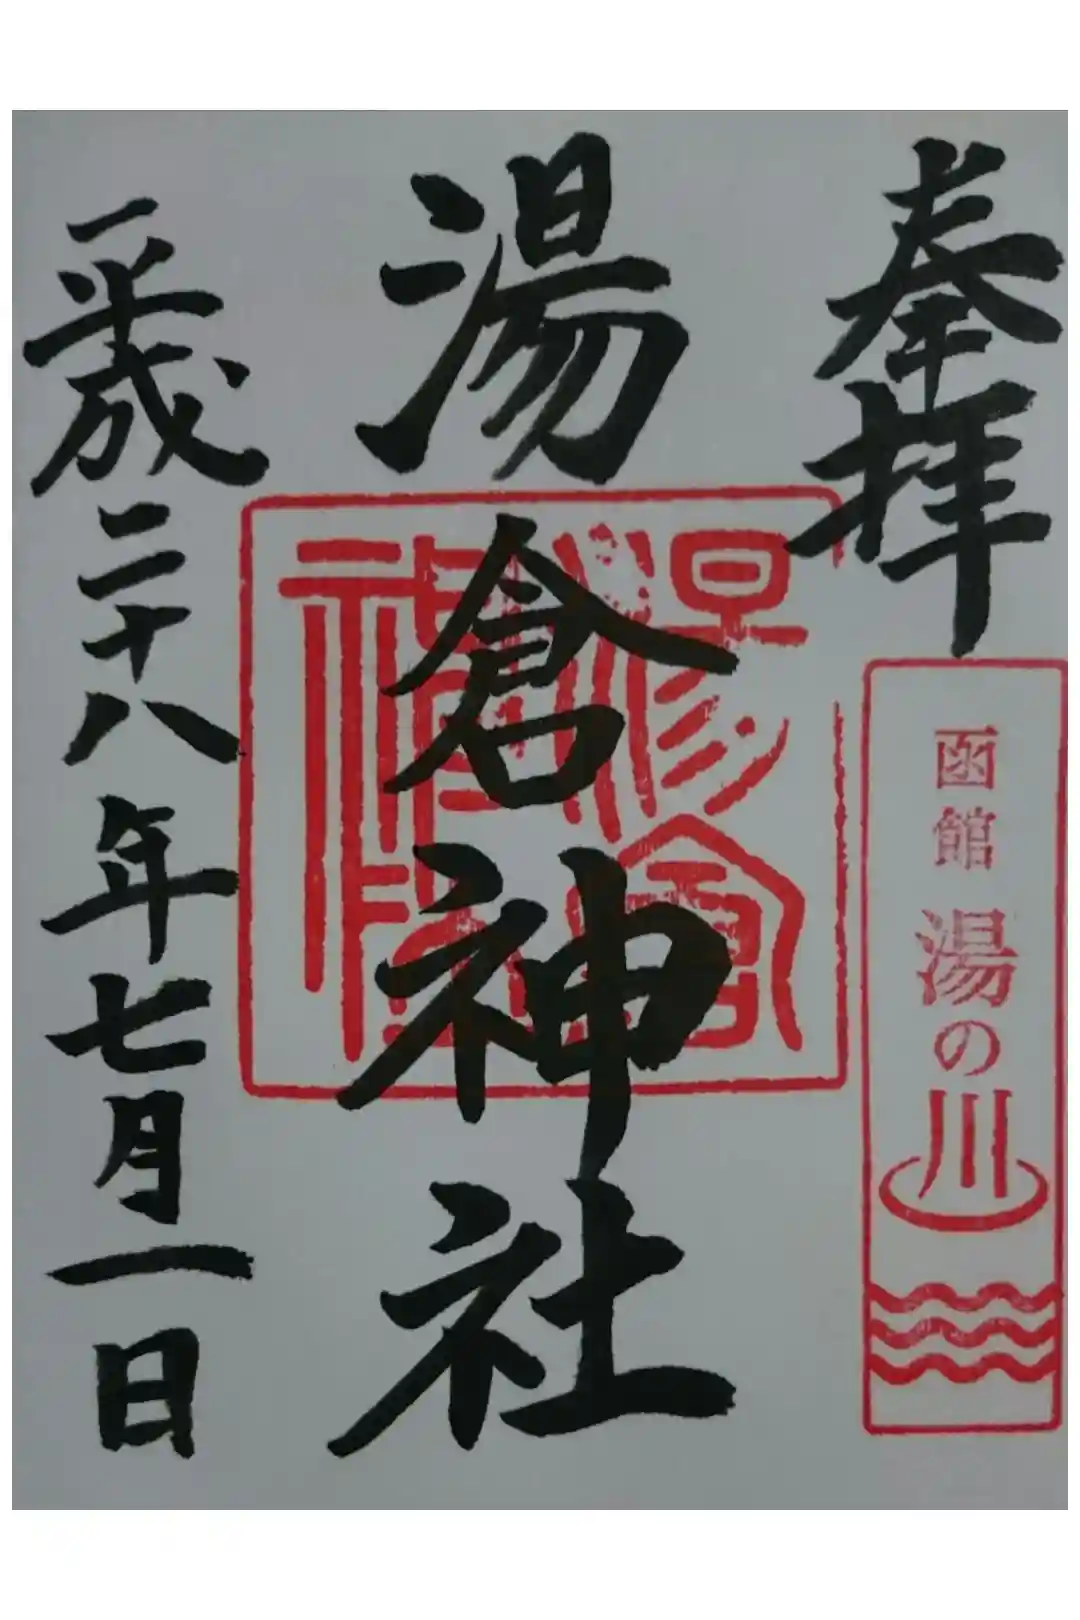 奉拝
函館 湯の川
湯倉神社
平成二十八年七月一日